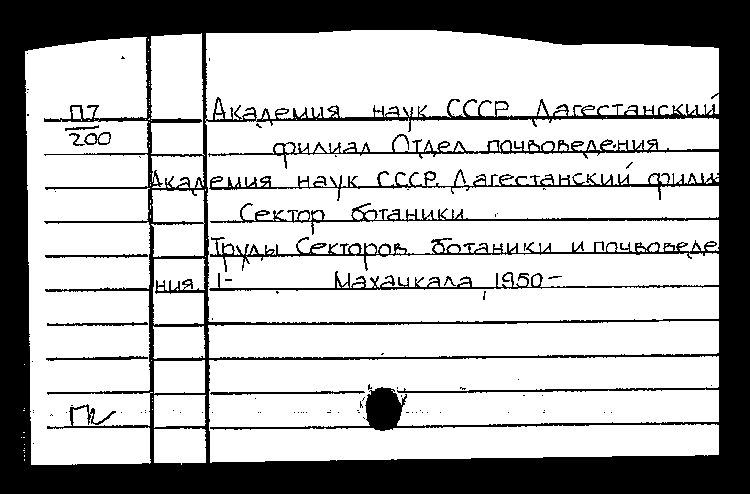 П7
200
Академия наук СССР. Дагестанский
филиал. Отдел почвоведения.
Академия наук СССР. Дагестанский фили
Сектор ботаники.
Труды Секторов ботаники и почвоведе
ния. 1- Махачкала, 1950-